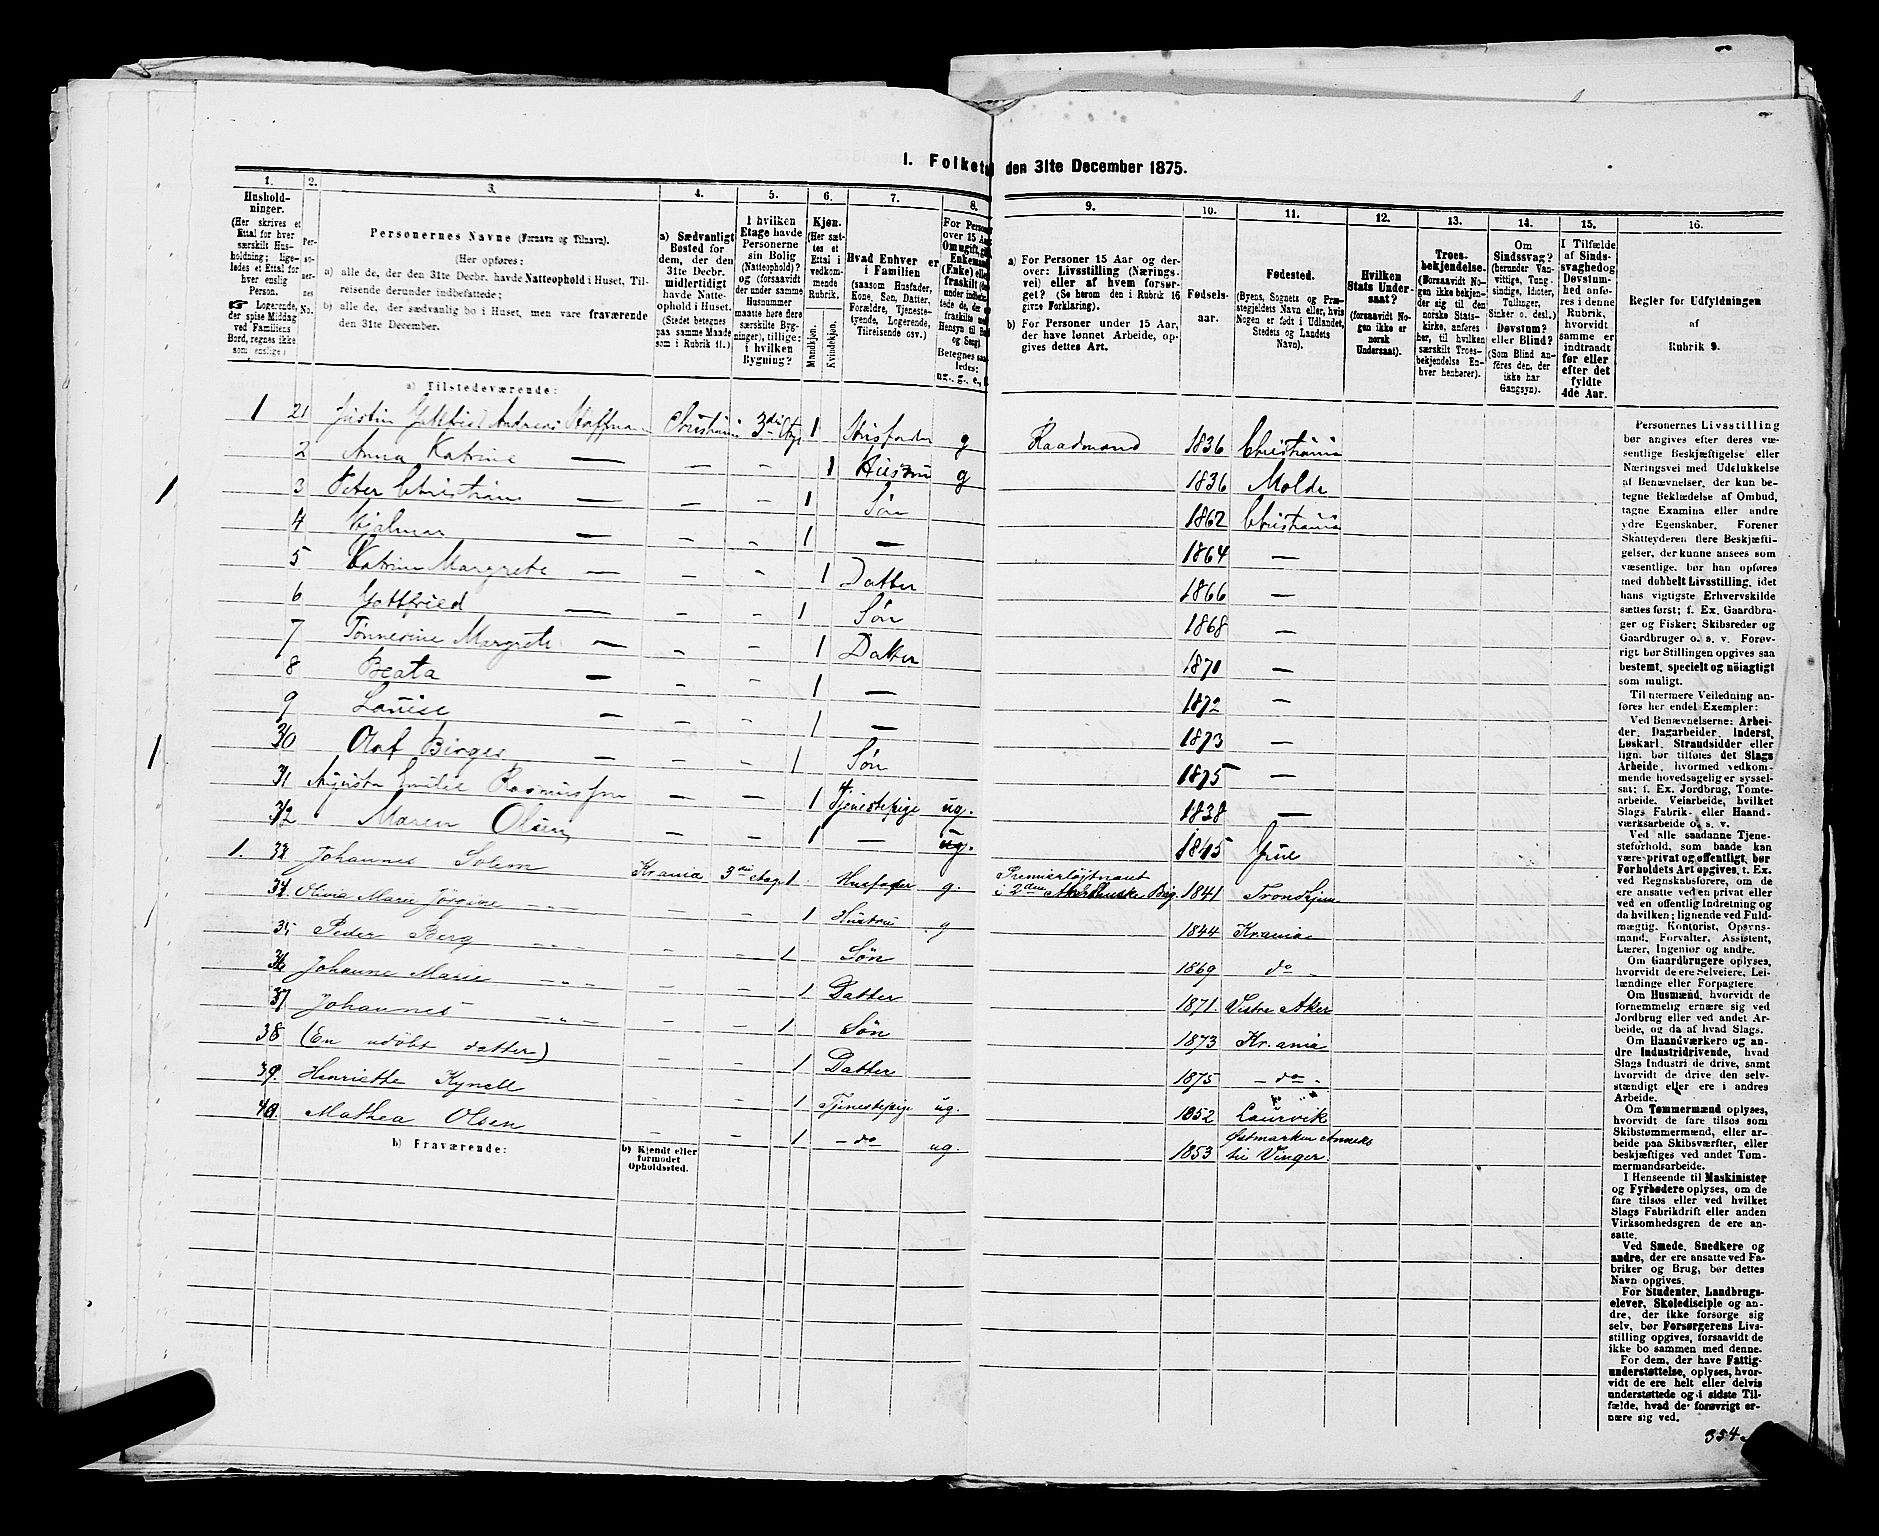 I. Folketæl
den 31te December 1875.
1.
Husholdninger.
(Her skrives et Ettal for hver særskilt Husholdning; ligeledes et Ettal for hver enslig Person.
Logerende, der spise Middag ved Familiens Bord, regnes ikke som enslige.)
2.
Personernes No.
3.
Personernes Navne (Fornavn og Tilnavn).
(Her opføres:
a) alle de, der den 31te Decbr. havde Natteophold i Huset, Tilreisende derunder indbefattede;
b) alle de, der sædvanlig bo i Huset, men vare fraværende den 31te December.
4.
a) Sædvanligt Bosted for dem, der den 31te Decbr. midlertidigt havde Natteophold i Huset.
(Stedet betegnes paa samme Maade som i Rubrik 11.)
5.
I hvilken Etage havde Personerne sin Bolig (Natteophold)? og (forsaavidt der under samme Husnummer maatte høre flere særskilte Bygninger), tillige: i hvilken Bygning?
6.
Kjøn.
(Her sættes et Ettal i vedkommende Rubrik.
Mandkjøn.
Kvindekjøn.
7.
Hvad Enhver er i Familien
(saasom Husfader, Kone, Søn, Datter, Forældre, Tjenestetyende, Logerende, Tilreisende osv.)
8.
9.
a) For Personer 15 Aar og derover: Livsstilling (Næringsvei) eller af hvem forsørget? (Se herom den i Rubrik 16 givne Forklaring).
b) For Personer under 15 Aar, der have lønnet Arbeide, opgives dettes Art.
10.
Fødselsaar.
11.
Fødested.
(Byens, Sognets og Præstegjeldets Navn eller, hvis Nogen er født i Udlandet, Stedets og Landets Navn).
12.
Hvilken Stats Undersaat?
(forsaavidt Nogen ikke er norsk Undersaat).
13.
Troesbekjendelse.
(Forsaavidt Nogen ikke bekjender sig til den norske Statskirke, anføres her, til hvilken særskilt Troesbekjendelse Enhver henhører).
14.
Om Sindssvag?
(herunder Vanvittige, Tungsindige, Idioter, Tullinger, Sinker o. desl.)
Døvstum? eller Blind?
(Som Blind anføres den, der ikke har Gangsyn).
15.
I Tilfælde af Sindssvaghed og Døvstumhed anføres i denne Rubrik, hvorvidt samme er indtraadt før eller efter det fyldte 4de Aar.
16.
Regler for Udfyldningen
af
Rubrik 9.
a) Tilstedeværende:
1 21 Andreas Christiania 3die Etg 1 Husfader g Raadmand 1836 Christiania
2 Anna Katrine — — — 1 Hustru g 1836 Molde
3 Peter Christian — — — 1 Søn 1862 Christiania
4 Hjalmar — — — 1 — 1864 —
5 Katrine Margrete — — — 1 Datter 1866 —
6 Gottfried — — — 1 Søn 1868 —
7 Tønnerine Margrete — — — 1 Datter 1870 —
8 Beata — — — 1 — 1872 —
9 Louise — — — 1 — 1873 —
30 Olaf Birger — — — 1 Søn 1875 —
31 Augusta Emilie Rasmussen — — 1 Tjenestepige ug. 1838 —
32 Maren Olsen — — 1 — ug. 1845 Grue
1. 33 Johannes Solem Krania 3die Etage 1 Husfader g. Premierløjtnant
i 2den Akershuske Brig. 1841 Trondhjem
34 Olivia Marie Jørgine „ „ — — 1 Hustru g 1844 Krania
35 Peder Berg „ „ — — 1 Søn 1869 do
36 Johanne Marie „ „ — — 1 Datter 1871. Vestre Aker
37 Johannes „ „ — — 1 Søn 1873 Krania
38 (En udöbt datter) — — 1 Datter 1875 — do —
39. Henriette Kynell — — 1 Tjenestepige ug. 1852 Laurvik
40. Mathea Olsen — — 1 — do ug. 1853 Østmarken Anneks
til Vinger.
b) Fraværende:
b) Kjendt eller formodet Opholdssted.
Personernes Livsstilling
bør angives efter deres væsentlige Beskjæftigelse eller
Næringsvei med Udelukkelse
af Benævnelser, der kun betegne Beklædelse af Ombud,
tagne Examina eller andre
ydre Egenskaber. Forener
Skatteyderen flere Beskjæftigelser, der kunne ansees som
væsentlige, bør han opføres
med dobbelt Livsstilling, idet
hans vigtigste Erhvervskilde
sættes først; f. Ex. Gaardbruger og Fisker; Skibsreder og
Gaardbruger o. s. v. Forøvrigt bør Stillingen opgives saa
bestemt, specielt og nöiagtigt
som muligt.
Til nærmere Veiledning anføres her endel Exempler:
Ved Benævnelserne: Arbeider, Dagarbeider, Inderst,
Løskarl, Strandsidder eller
lign. bør tilføres det Slags
Arbeide, hvormed vedkommende hovedsagelig er sysselsat; f. Ex. Jordbrug, Tomtearbeide, Veiarbeide, hvilket
Slags Fabrik- eller Haandværksarbeide o. s. v.
Ved alle saadanne Tjenesteforhold, som baade kan
være privat og offentligt, bør
Forholdets Art opgives, t. Ex.
ved Regnskabsførere, om de
ere ansatte ved en privat eller
ved en offentlig Indretning og
da hvilken; lignende ved Fuldmægtig, Kontorist, Opsynsmand, Forvalter, Assistent,
Lærer, Ingeniør og andre.
Om Gaardbrugere oplyses,
hvorvidt de ere Selveiere, Leilændinge eller Forpagtere.
Om Husmænd, hvorvidt de
fornemmelig ernære sig ved
Jordbrug eller ved andet Arbeide, og da af hvad Slags.
Om Haandværkere og andre Industridrivende, hvad
Slags Industri de drive, samt
hvorvidt de drive den selvstændigt eller ere i andres
Arbeide.
Om Tømmermænd oplyses,
hvorvidt de fare tilsøs som
Skibstømmermænd, eller arbeide paa Skibsværfter, eller
beskjæftiges ved andet Tømmermandsarbeide.
I Henseende til Maskinister
og Fyrbødere oplyses, om de
fare tilsøs eller ved hvilket
Slags Fabrikdrift eller anden
Virksomhedsgren de ere ansatte.
Ved Smede, Snedkere og
andre, der ere ansatte ved Fabriker og Brug, bør dettes
Navn opgives.
For Studenter, Landbrugselever, Skoledisciple og andre, der ikke forsørge sig
selv, bør Forsørgerens Livsstilling opgives, forsaavidt de
ikke bo sammen med denne.
For dem, der have Fattigunderstøttelse, oplyses, hvorvidt de ere helt eller delvis
understøttede og i sidste Tilfælde, hvad de forøvrigt ernære sig ved.
354